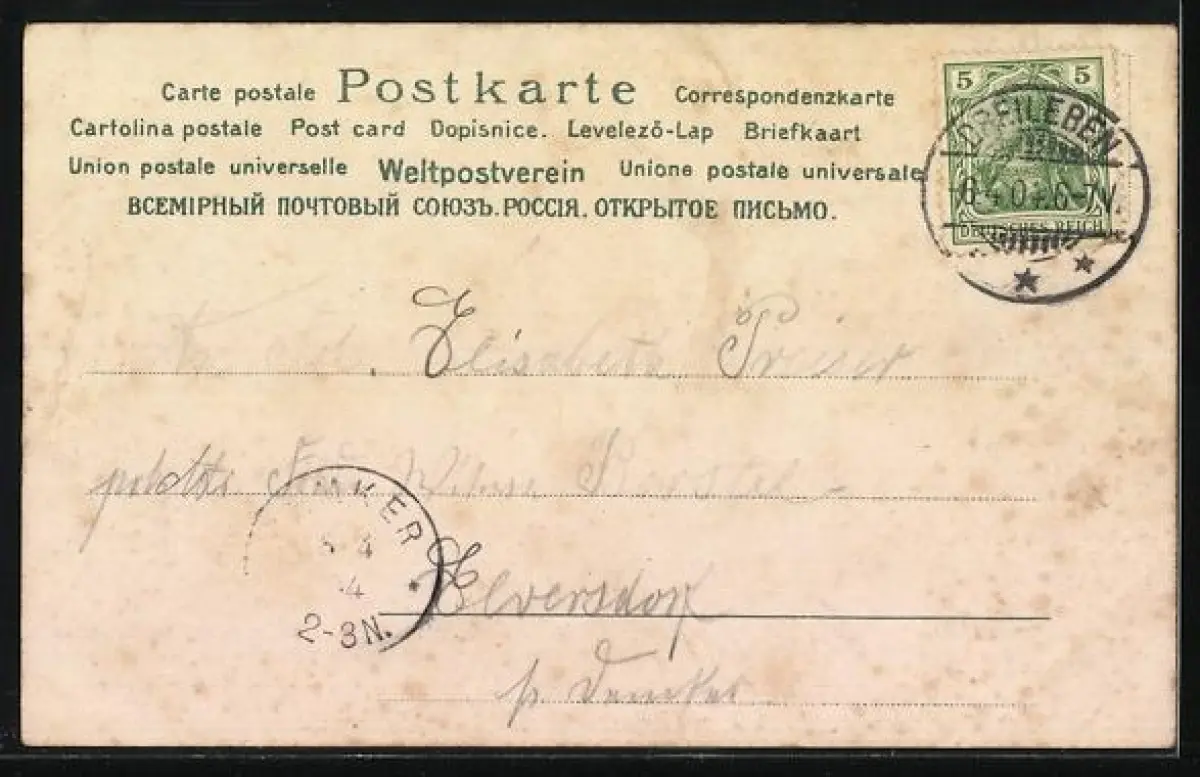 Carte postale Postkarte Correspondenzkarte
Cartolina postale Post card Dopisnice. Levelező-Lap Briefkaart
Union postale universelle Weltpostverein Unione postale universale
ВСЕМІРНЫЙ ПОЧТОВЫЙ СОЮЗЪ. РОССІЯ. ОТКРЫТОЕ ПИСЬМО.
5 5
DREILEBEN
6-7V.
DEUTSCHES REICH
Elisabeth
KER
4
4
2-3N.
p. Demker